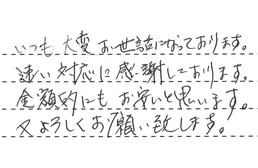 いつも大変お世話になっております。
速い対応に感謝しております。
金額的にもお安いと思います。
又よろしくお願い致します。